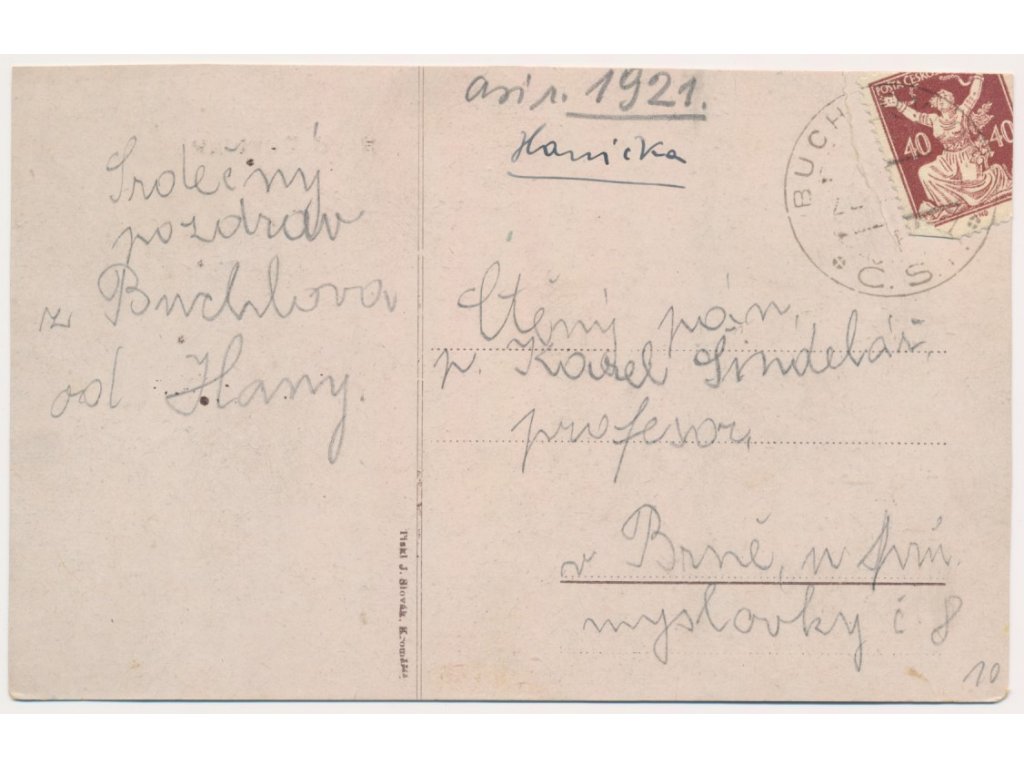 asi r. 1921.
Hanička
Srdečný
pozdrav
z Buchlova
od Hany.
Ctěný pán,
p. Karel Šindelář,
profesor,
v Brně, u Prů
myslovky č. 8
10
Tiskl J. Slovák, Kroměříž.
POŠTA ČESKO
40 40
BUCH
Č.S.